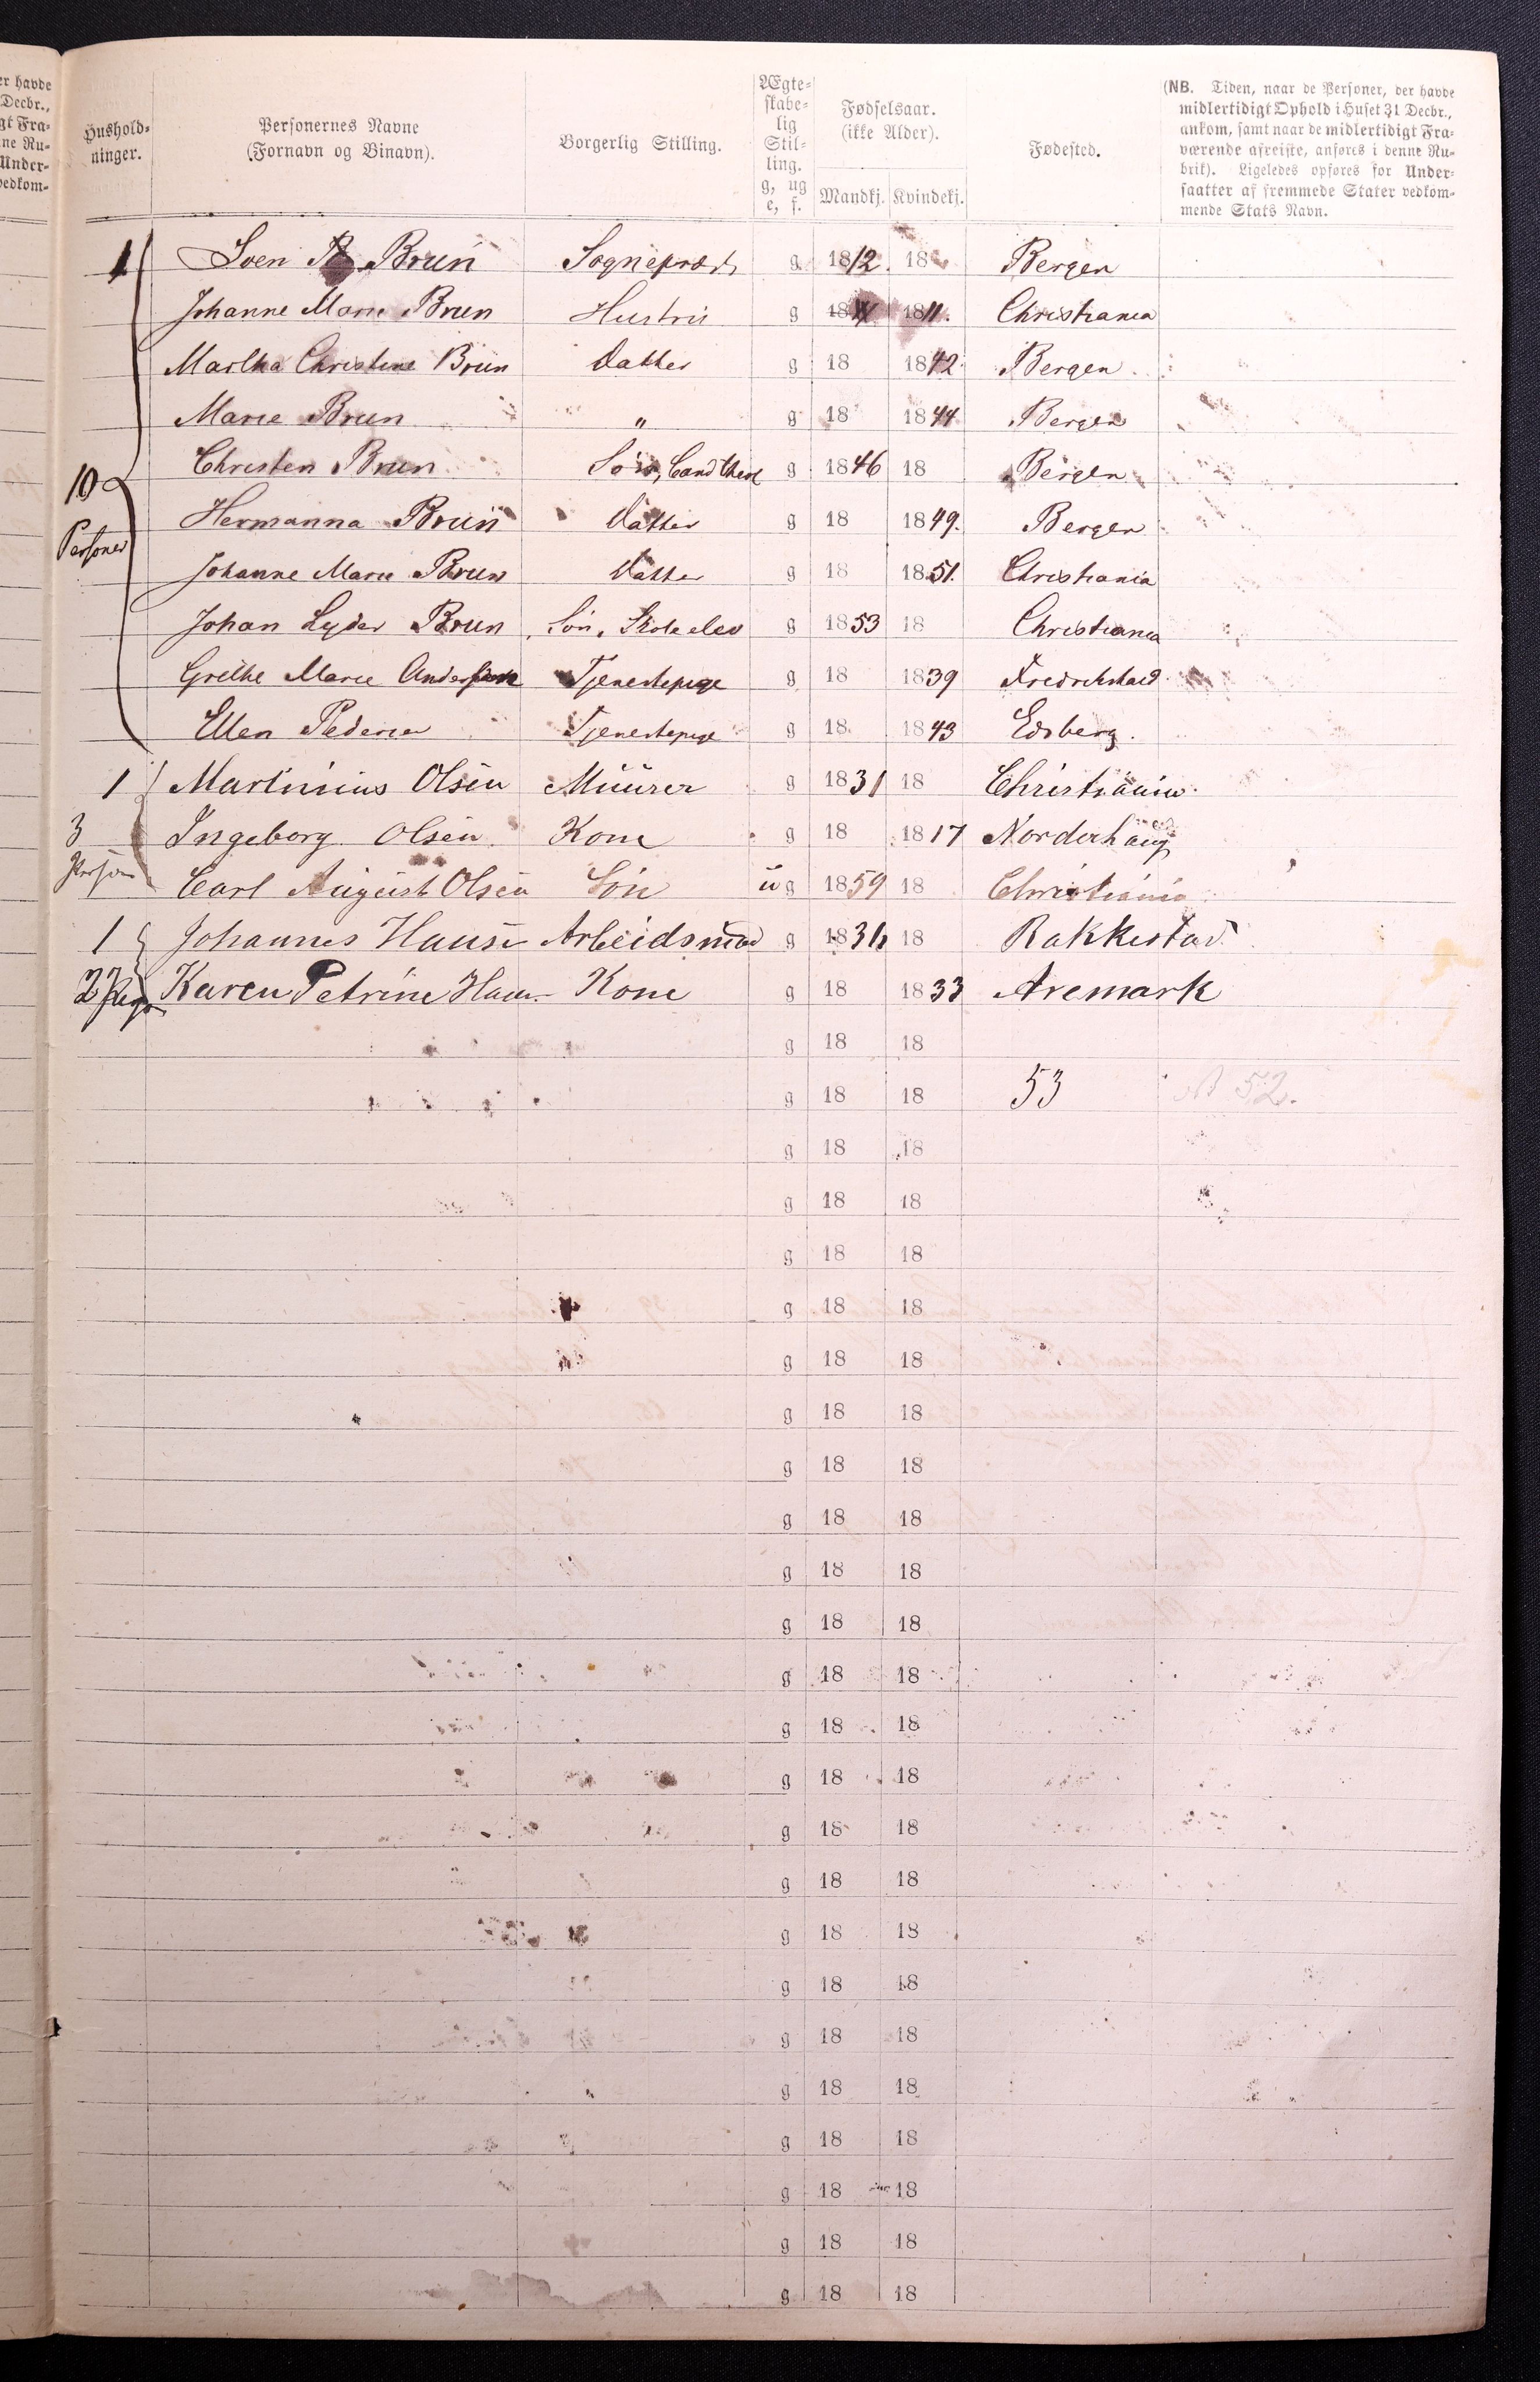 er havde
Decbr.,
gt Fra-
ne Ru-
Under-
vedkom-
Hushold-
ninger.
Personernes Navne
(Fornavn og Binavn).
Borgerlig Stilling.
Ægte-
skabe-
lig
Stil-
ling.
g, ug
e, f.
Fødselsaar.
(ikke Alder).
Mandkj. Kvindekj.
Fødested.
(NB. Tiden, naar de Personer, der havde
midlertidigt Ophold i Huset 31 Decbr.,
ankom, samt naar de midlertidigt Fra-
værende afreiste, anføres i denne Ru-
brik). Ligeledes opføres for Under-
saatter af fremmede Stater vedkom-
mende Stats Navn.
1 Sven B Brun Sognepræst g 1812. 18 Bergen
Johanne Marie Brun Hustru g 18 1811. Christiania
Martha Christine Brun Datter g 18 1842 Bergen
Marie Brun " g 18 1844 Bergen
Christen Brun Søn, Cand theol g 1846 18 Bergen
10
Personer
Hermanna Brun Datter g 18 1849. Bergen
Johanne Marie Brun Datter g 18 1851. Christiania
Johan Lyder Brun Søn, Skoleelev g 1853 18 Christiania
Grethe Marie Andersen Tjenestepige g 18 1839 Fredrikstad
Ellen Pedersen Tjenestepige g 18 1843 Edsberg.
1 Martinius Olsen Muurer g 1831 18 Christiania
3 Ingeborg Olsen Kone g 18 1817 Norderhaug
Person Carl August Olsen Søn ug 1859 18 Christiania
1 Johannes Hansen Arbeidsmand g 1831 18 Rakkestad
2 Karen Petrine Hansen Kone g 18 1833 Aremark
g 18 18
g 18 18 53 52.
g 18 18
g 18 18
g 18 18
g 18 18
g 18 18
g 18 18
g 18 18
g 18 18
g 18 18
g 18 18
g 18 18
g 18 18
g 18 18
g 18 18
g 18 18
g 18 18
g 18 18
g 18 18
g 18 18
g 18 18
g 18 18
g 18 18
g 18 18